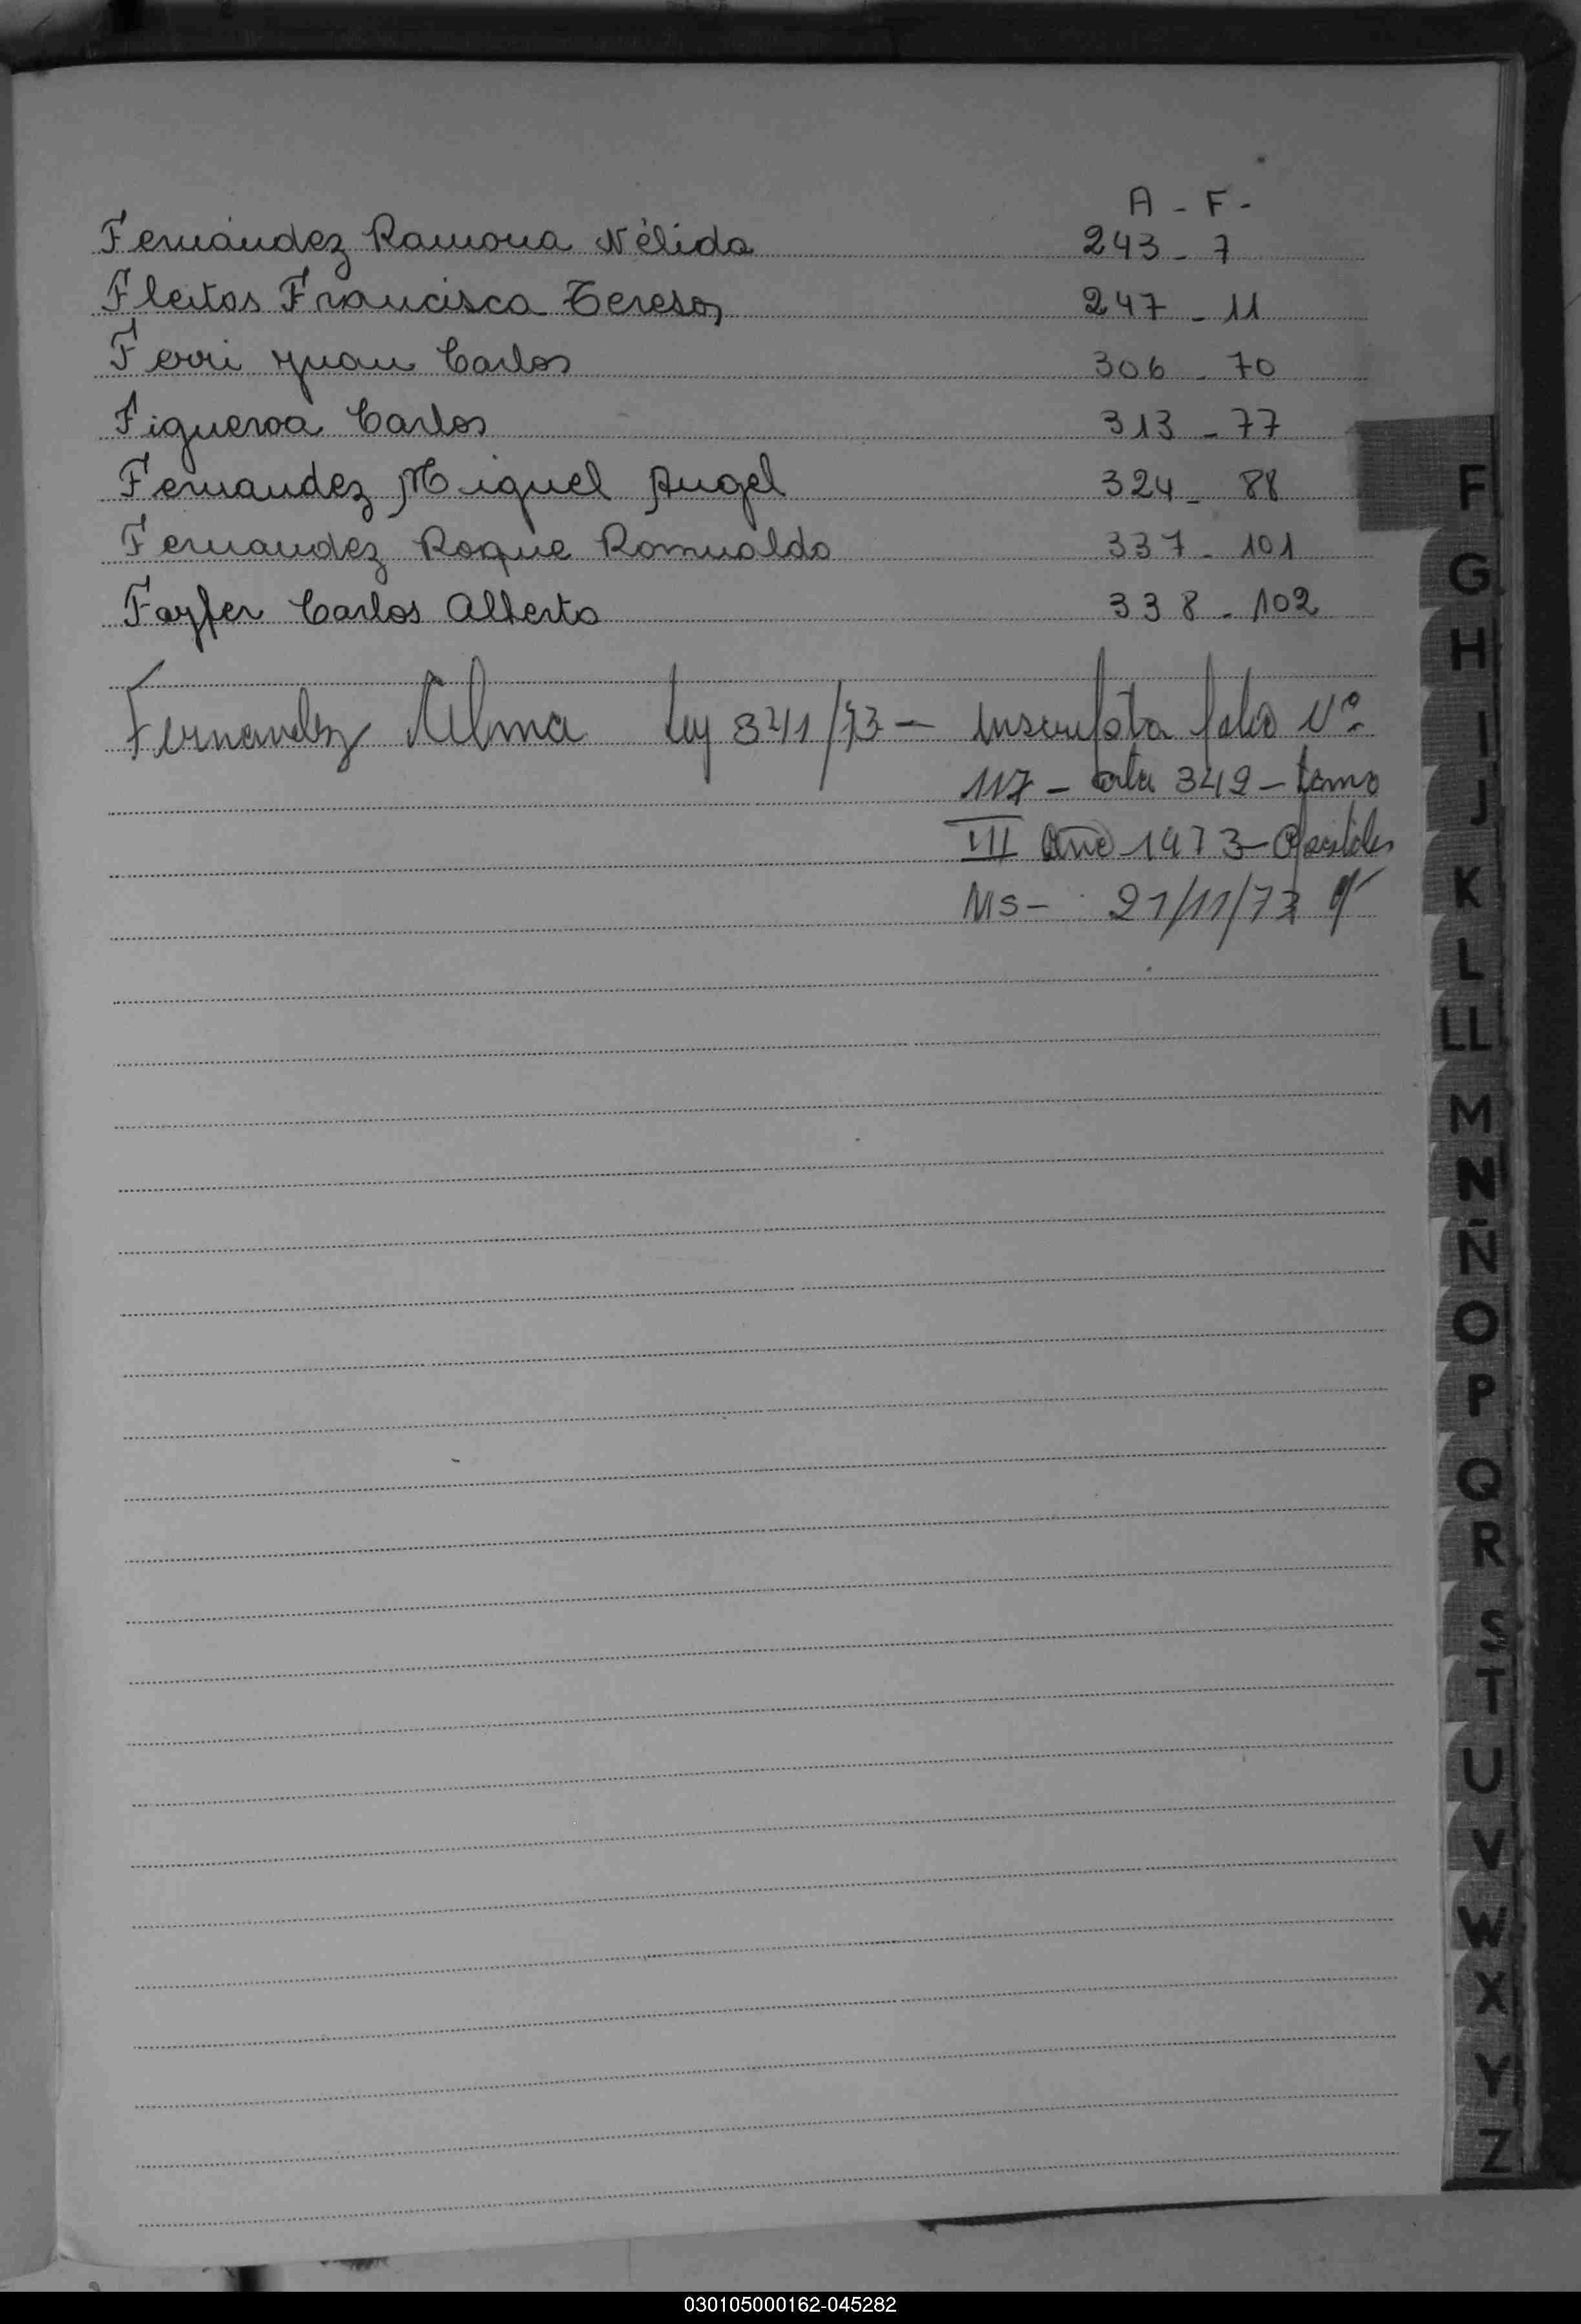 A - F -
Fernández Ramona Nélida 243 - 7
Fleitas Francisca Teresa 247 - 11
Ferri Juan Carlos 306 - 70
Figueroa Carlos 313 - 77
Fernandez Miguel Angel 324 - 88
Fernandez Roque Romualdo 337 - 101
Fayfer Carlos Alberto 338 - 102
Fernandez Alma Ley 341/73 - Inscripta folio Nº
117 - acta 349 - tomo
III Año 1973 - Apóstoles
Ms - 21/11/73
F
G
H
I
J
K
L
LL
M
N
Ñ
O
P
Q
R
S
T
U
V
W
X
Y
Z
030105000162-045282